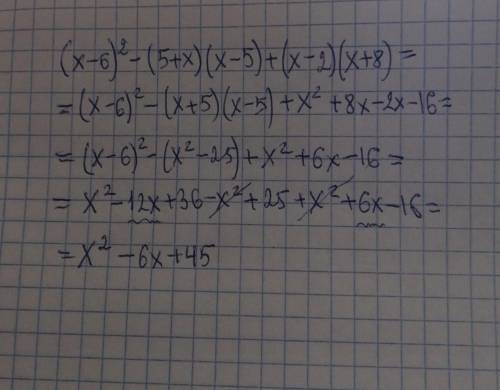 (x-6)² - (5+x)(x-5) + (x-2)(x+8) =
= (x-6)² - (x+5)(x-5) + x² + 8x - 2x - 16 =
= (x-6)² - (x² - 25) + x² + 6x - 16 =
= x² - 12x + 36 - x² + 25 + x² + 6x - 16 =
= x² - 6x + 45